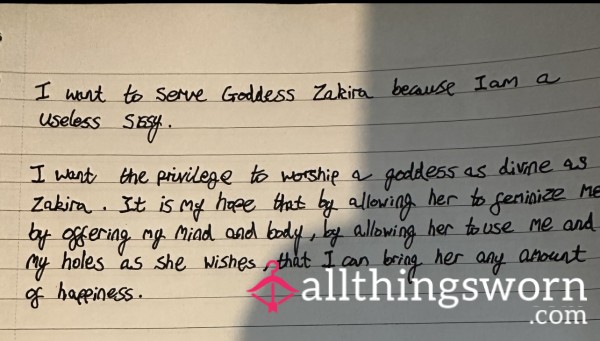 I want to serve Goddess Zakira because I am a
useless sissy.
I want the privilege to worship a goddess as divine as
Zakira. It is my hope that by allowing her to feminize me
by offering my mind and body, by allowing her to use me and
my holes as she wishes, that I can bring her any amount
of happiness.
allthingsworn
.com